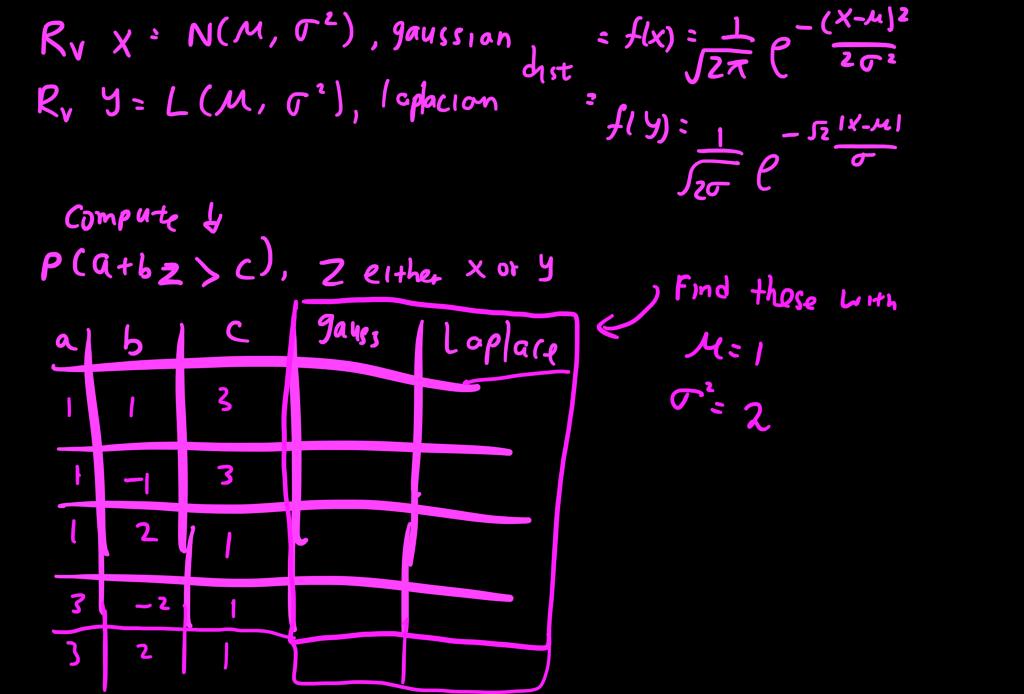 Rv X = N(μ, σ²), gaussian dist = f(x) = 1/√2π e^-(x-μ)²/2σ²
Rv Y = L(μ, σ²), laplacian = f(y) = 1/√2σ e^-√2 |x-μ|/σ
Compute ↓
P(a+bz > c), Z either x or y
Find these with
μ = 1
σ² = 2
a b c gauss Laplace
1 1 3
1 -1 3
1 2 1
3 -2 1
3 2 1